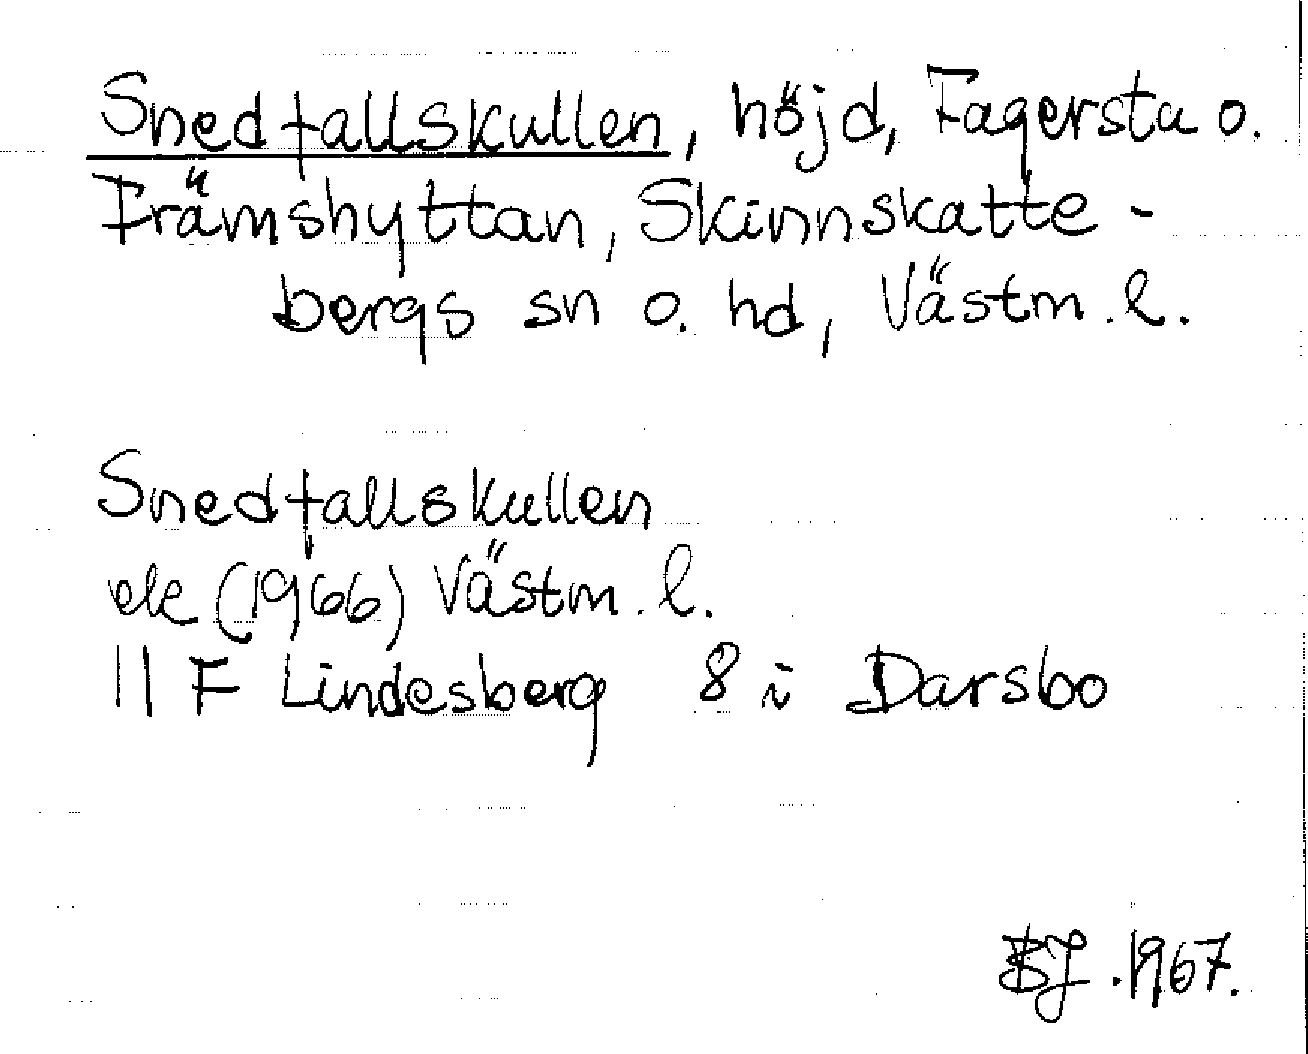 Snedfallskullen, höjd, Fagersta o.
Främshyttan, Skinnskatte-
bergs sn o. hd, Västm. l.
Snedfallskullen
ek (1966) Västm. l.
11 F Lindesberg 8 i Darsbo
BJ. 1967.